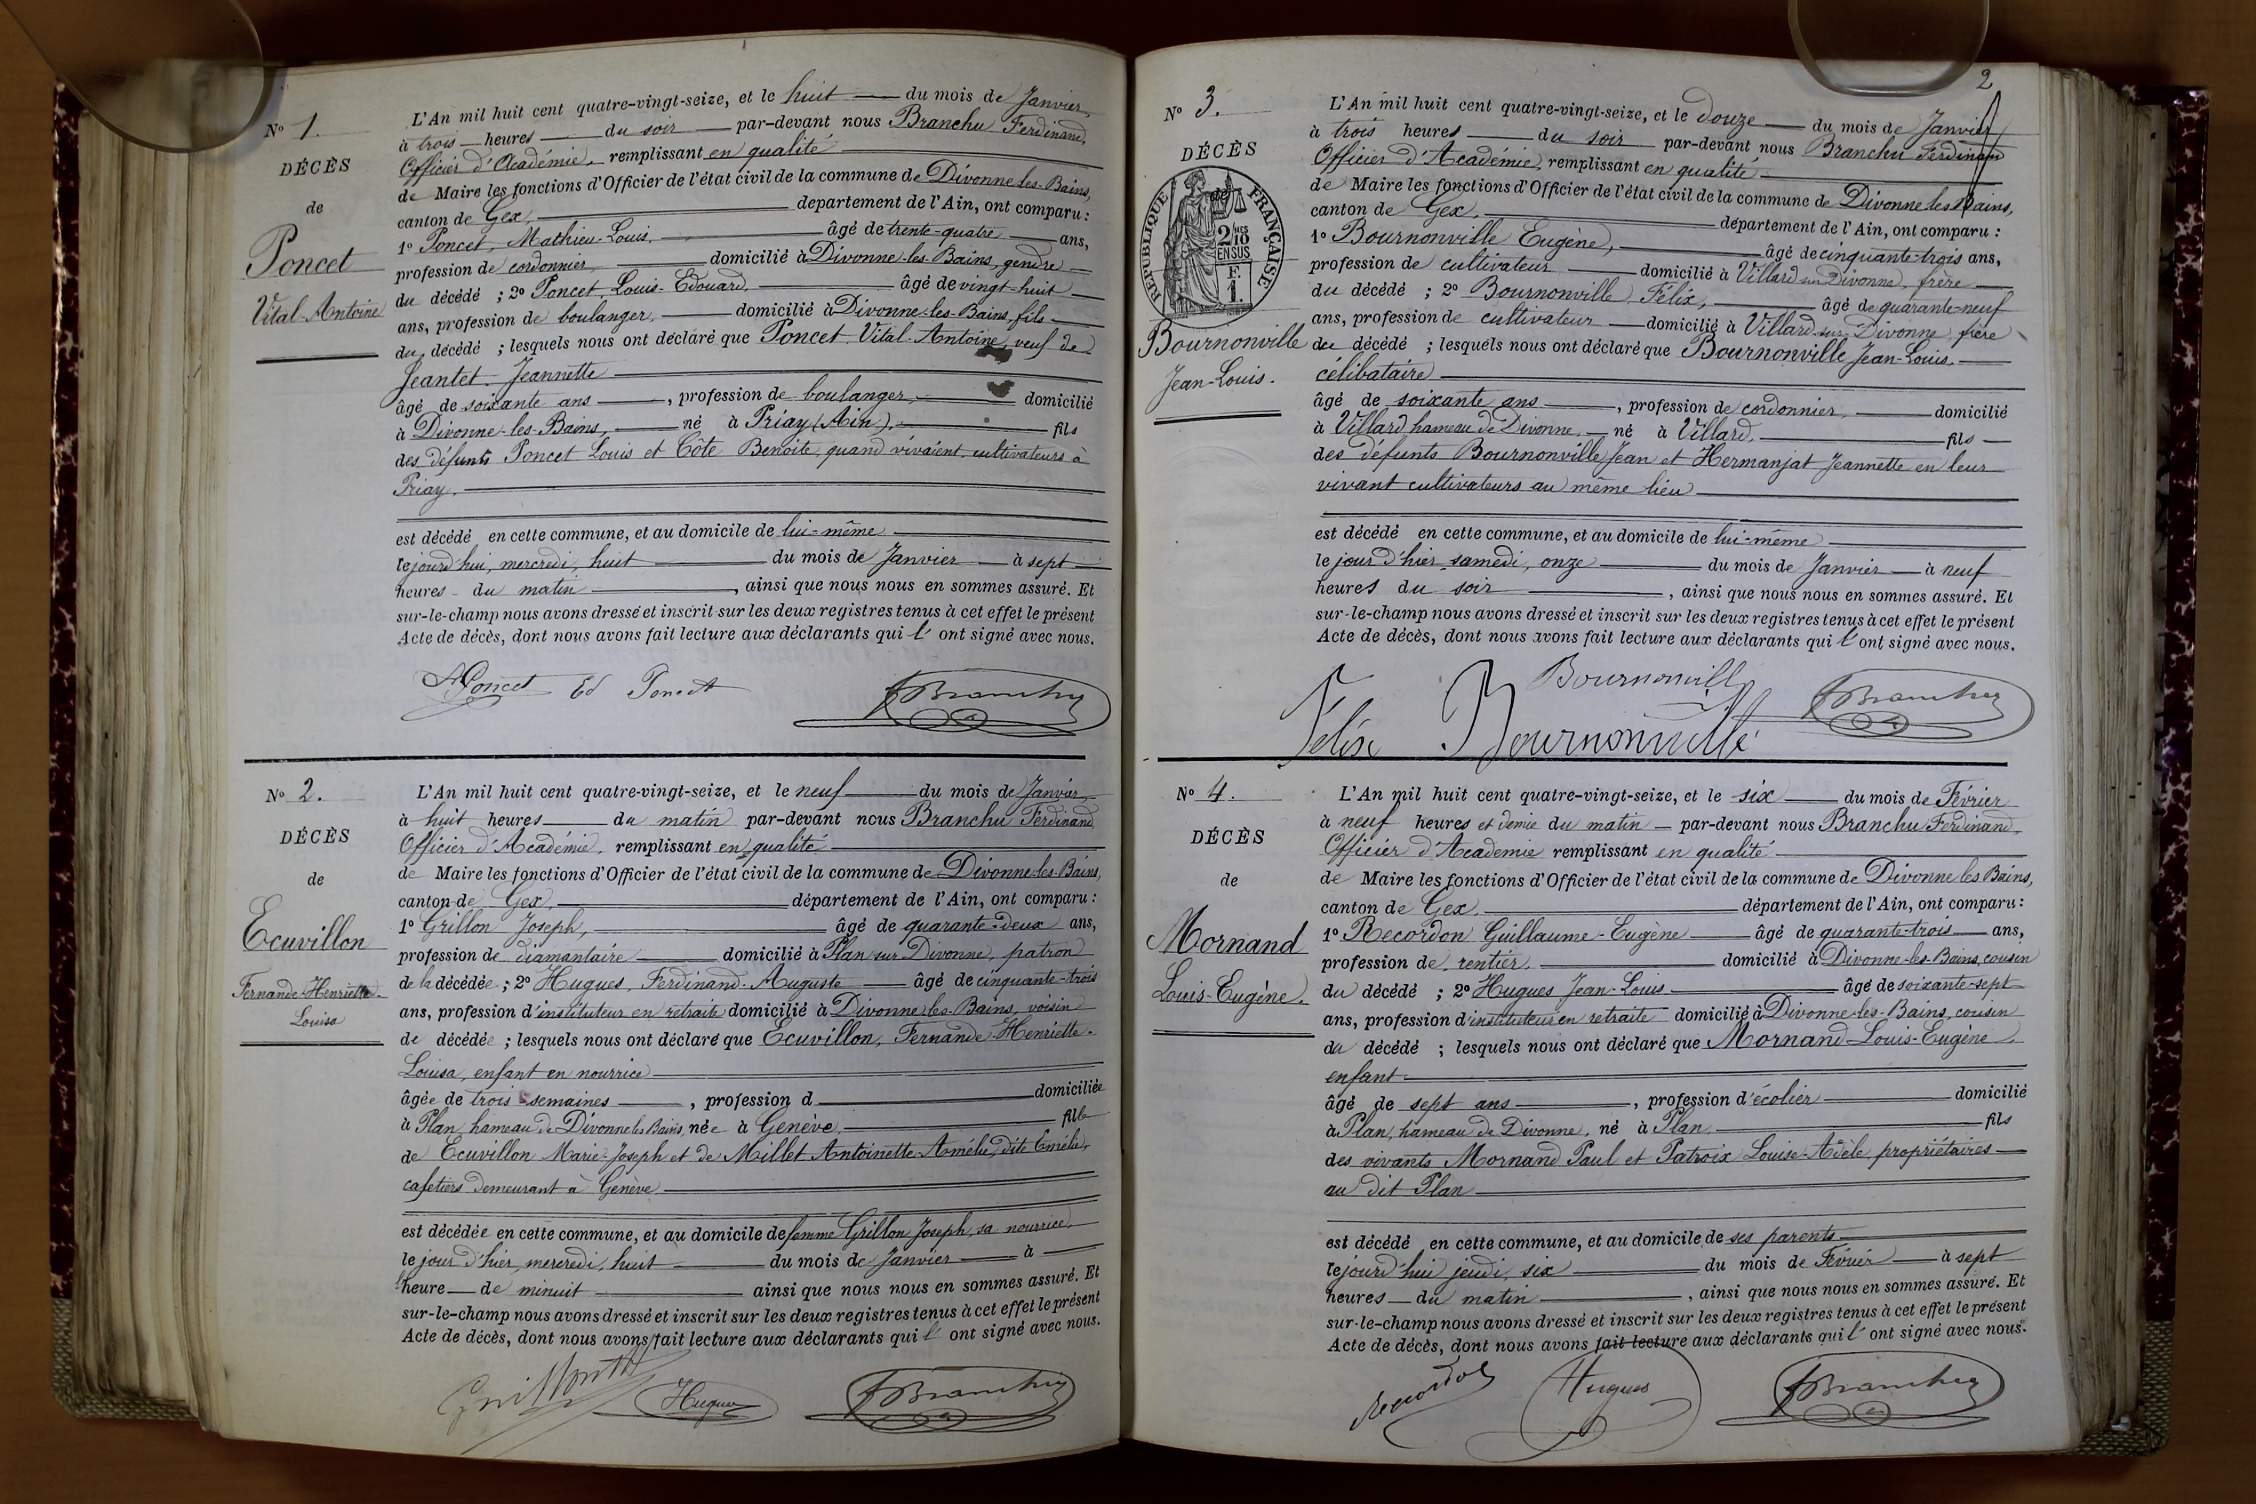 N° 1.
DÉCÈS
de
Poncet
Vital-Antoine
L'An mil huit cent quatre-vingt-seize, et le huit du mois de Janvier,
à trois heures du soir par-devant nous Branchu Ferdinand,
Officier d'Académie, remplissant en qualité
de Maire les fonctions d'Officier de l'état civil de la commune de Divonne-les-Bains,
canton de Gex, département de l'Ain, ont comparu :
1° Poncet, Mathieu-Louis, âgé de trente-quatre ans,
profession de cordonnier, domicilié à Divonne-les-Bains, gendre
du décédé ; 2° Poncet, Louis-Edouard, âgé de vingt-huit
ans, profession de boulanger, domicilié à Divonne-les-Bains, fils
du décédé ; lesquels nous ont déclaré que Poncet Vital-Antoine, veuf de
Jeantet Jeannette
âgé de soixante ans, profession de boulanger, domicilié
à Divonne-les-Bains, né à Priay (Ain), fils
des défunts Poncet Louis et Côte Benoite, quand vivaient cultivateurs à
Priay.
est décédé en cette commune, et au domicile de lui-même
cejourd'hui, mercredi, huit du mois de Janvier à sept
heures du matin, ainsi que nous nous en sommes assuré. Et
sur-le-champ nous avons dressé et inscrit sur les deux registres tenus à cet effet le présent
Acte de décès, dont nous avons fait lecture aux déclarants qui l'ont signé avec nous.
Poncet Ed Poncet FBranchu
N° 2.
DÉCÈS
de
Ecuvillon
Fernande-Henriette-
Louisa
L'An mil huit cent quatre-vingt-seize, et le neuf du mois de Janvier,
à huit heures du matin par-devant nous Branchu Ferdinand
Officier d'Académie, remplissant en qualité
de Maire les fonctions d'Officier de l'état civil de la commune de Divonne-les-Bains,
canton de Gex, département de l'Ain, ont comparu :
1° Grillon Joseph, âgé de quarante-deux ans,
profession de diamantaire domicilié à Plan sur Divonne, patron
de la décédée ; 2° Hugues, Ferdinand-Auguste âgé de cinquante-trois
ans, profession d'instituteur en retraite domicilié à Divonne-les-Bains, voisin
de décédée ; lesquels nous ont déclaré que Ecuvillon, Fernande-Henriette-
Louisa, enfant en nourrice
âgée de trois semaines, profession d domiciliée
à Plan, hameau de Divonne les Bains, née à Genève, fille
de Ecuvillon Marie-Joseph et de Millet Antoinette-Amélie, dite Emélie,
cafetiers demeurant à Genève
est décédée en cette commune, et au domicile de femme Grillon Joseph, sa nourrice
le jour d'hier, mercredi, huit du mois de Janvier à
l'heure de minuit ainsi que nous nous en sommes assuré. Et
sur-le-champ nous avons dressé et inscrit sur les deux registres tenus à cet effet le présent
Acte de décès, dont nous avons fait lecture aux déclarants qui l'ont signé avec nous.
Hugues FBranchu
2
N° 3.
DÉCÈS
de
RÉPUBLIQUE FRANÇAISE
2/10 EN SUS
F.
1.
Bournonville
Jean-Louis.
L'An mil huit cent quatre-vingt-seize, et le douze du mois de Janvier
à trois heures du soir par-devant nous Branchu Ferdinand
Officier d'Académie, remplissant en qualité
de Maire les fonctions d'Officier de l'état civil de la commune de Divonne les Bains,
canton de Gex, département de l'Ain, ont comparu :
1° Bournonville Eugène, âgé de cinquante-trois ans,
profession de cultivateur domicilié à Villard sur Divonne, frère
du décédé ; 2° Bournonville Félix, âgé de quarante-neuf
ans, profession de cultivateur domicilié à Villard sur Divonne, frère
du décédé ; lesquels nous ont déclaré que Bournonville Jean-Louis,
célibataire
âgé de soixante ans, profession de cordonnier, domicilié
à Villard hameau de Divonne, né à Villard, fils
des défunts Bournonville Jean et Hermanjat Jeannette en leur
vivant cultivateurs au même lieu
est décédé en cette commune, et au domicile de lui-même
le jour d'hier samedi, onze du mois de Janvier à neuf
heures du soir, ainsi que nous nous en sommes assuré. Et
sur-le-champ nous avons dressé et inscrit sur les deux registres tenus à cet effet le présent
Acte de décès, dont nous avons fait lecture aux déclarants qui l'ont signé avec nous.
Bournonville FBranchu
Félix Bournonville
N° 4.
DÉCÈS
de
Mornand
Louis-Eugène.
L'An mil huit cent quatre-vingt-seize, et le six du mois de Février
à neuf heures et demie du matin par-devant nous Branchu Ferdinand,
Officier d'Academie remplissant en qualité
de Maire les fonctions d'Officier de l'état civil de la commune de Divonne les Bains,
canton de Gex, département de l'Ain, ont comparu :
1° Recordon Guillaume-Eugène âgé de quarante-trois ans,
profession de rentier, domicilié à Divonne-les-Bains, cousin
du décédé ; 2° Hugues Jean-Louis âgé de soixante-sept
ans, profession d'instituteur en retraite domicilié à Divonne-les-Bains, cousin
du décédé ; lesquels nous ont déclaré que Mornand Louis-Eugène,
enfant
âgé de sept ans, profession d'écolier domicilié
à Plan, hameau de Divonne, né à Plan, fils
des vivants Mornand Paul et Patroix Louise-Adèle propriétaires
au dit Plan
est décédé en cette commune, et au domicile de ses parents
cejourd'hui jeudi, six du mois de Février à sept
heures du matin, ainsi que nous nous en sommes assuré. Et
sur-le-champ nous avons dressé et inscrit sur les deux registres tenus à cet effet le présent
Acte de décès, dont nous avons fait lecture aux déclarants qui l'ont signé avec nous.
Recordon Hugues FBranchu